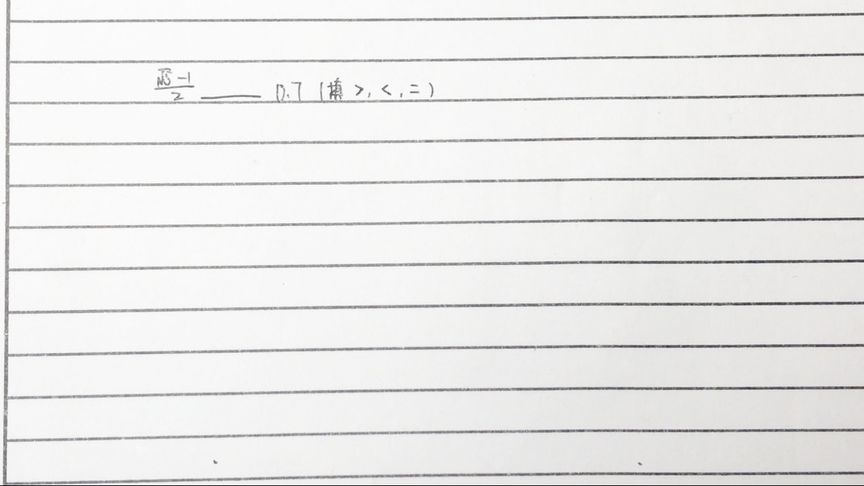 $\frac{\sqrt{5}-1}{2}$ ____ 0.7 (填 >, <, =)